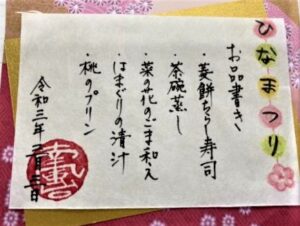 ひなまつり
お品書き
・菱餅ちらし寿司
・茶碗蒸し
・菜の花のごま和え
・はまぐりの清汁
・桃のプリン
令和三年三月三日